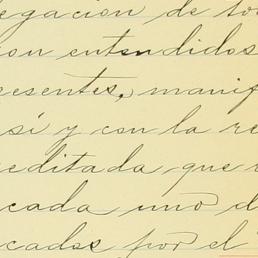 legacion de to
ion entendidos
resentes, manif
si y con la re
editada que
cada uno d
cados por el